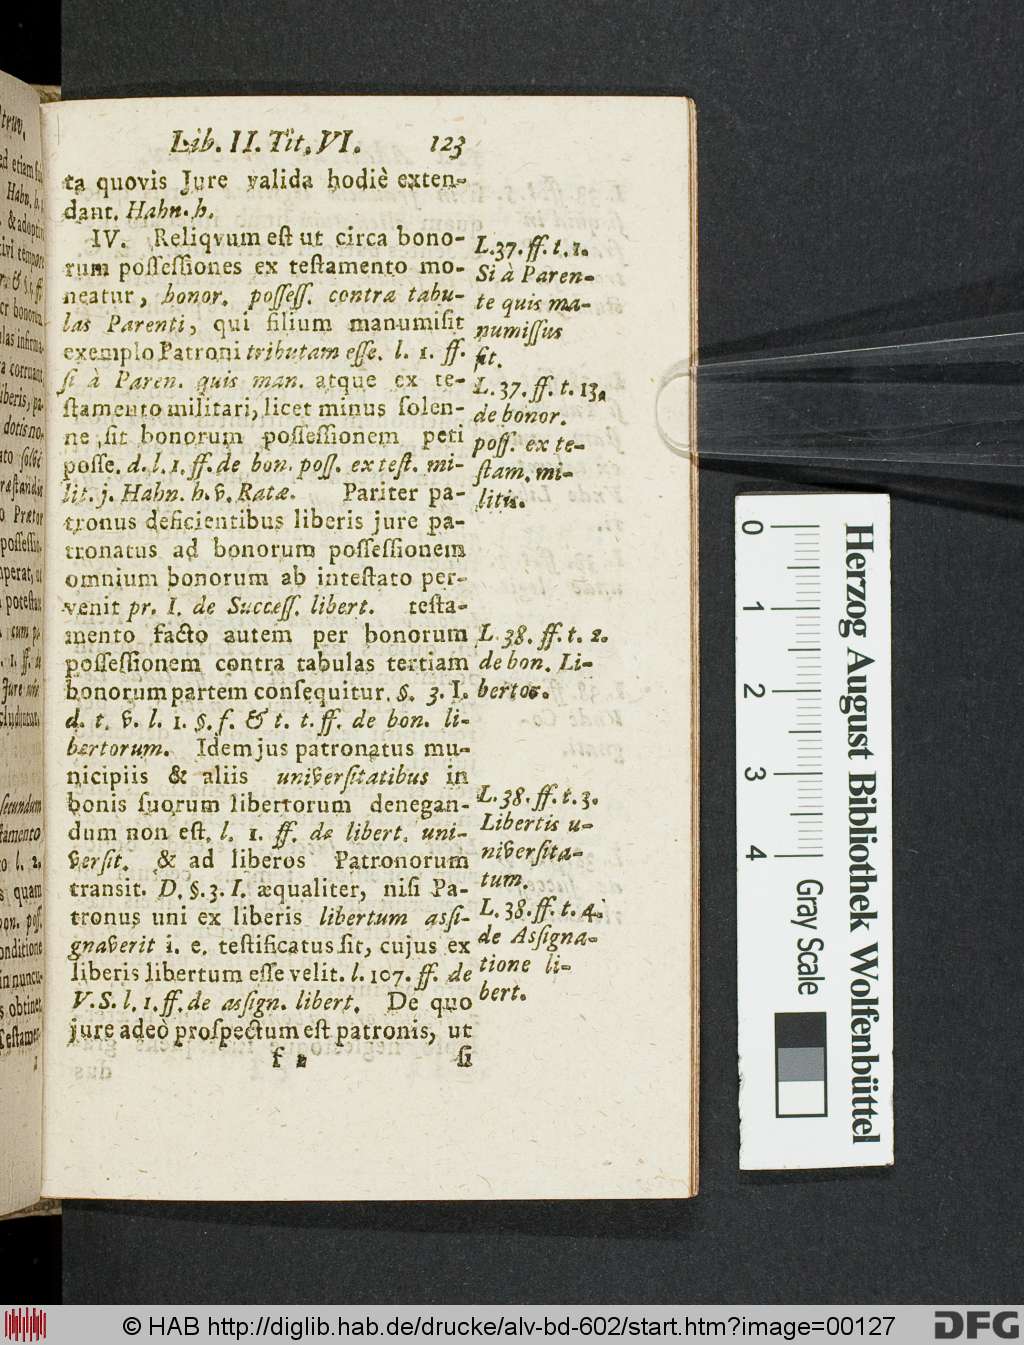 Lib. II. Tit. VI. 123
ta quovis Jure valida hodiè exten-
dant. Hahn. h.
IV. Reliqvum eſt ut circa bono-
rum poſſeſſiones ex teſtamento mo-
neatur, honor. poſſeſſ. contra tabu-
las Parenti, qui filium manumiſit
exemplo Patroni tributam eſſe. l. 1. ff.
ſi à Paren. quis man. atque ex te-
ſtamento militari, licet minus ſolen-
ne ſit bonorum poſſeſſionem peti
poſſe. d. l. 1. ff. de bon. poſſ. ex teſt. mi-
lit. j. Hahn. h. v. Ratæ. Pariter pa-
tronus deficientibus liberis jure pa-
tronatus ad bonorum poſſeſſionem
omnium bonorum ab inteſtato per-
venit pr. I. de Succeſſ. libert. teſta-
mento facto autem per bonorum
poſſeſſionem contra tabulas tertiam
bonorum partem conſequitur. §. 3. I.
d. t. v. l. 1. §. f. & t. t. ff. de bon. li-
bertorum. Idem jus patronatus mu-
nicipiis & aliis univerſitatibus in
bonis ſuorum libertorum denegan-
dum non eſt. l. 1. ff. de libert. uni-
verſit. & ad liberos Patronorum
transit. D. §. 3. I. æqualiter, niſi Pa-
tronus uni ex liberis libertum aſſi-
gnaverit i. e. teſtificatus ſit, cujus ex
liberis libertum eſſe velit. l. 107. ff. de
V. S. l. 1. ff. de aſſign. libert. De quo
jure adeò proſpectum eſt patronis, ut
f 2 ſi
L. 37. ff. t. 1.
Si à Paren-
te quis ma-
numiſſus
ſit.
L. 37. ff. t. 13.
de bonor.
poſſ. ex te-
ſtam. mi-
litis.
L. 38. ff. t. 2.
de bon. Li-
bertor.
L. 38. ff. t. 3.
Libertis u-
niverſita-
tum.
L. 38. ff. t. 4.
de Aſſigna-
tione li-
bert.
0 1 2 3 4 Gray Scale
Herzog August Bibliothek Wolfenbüttel
© HAB http://diglib.hab.de/drucke/alv-bd-602/start.htm?image=00127
DFG